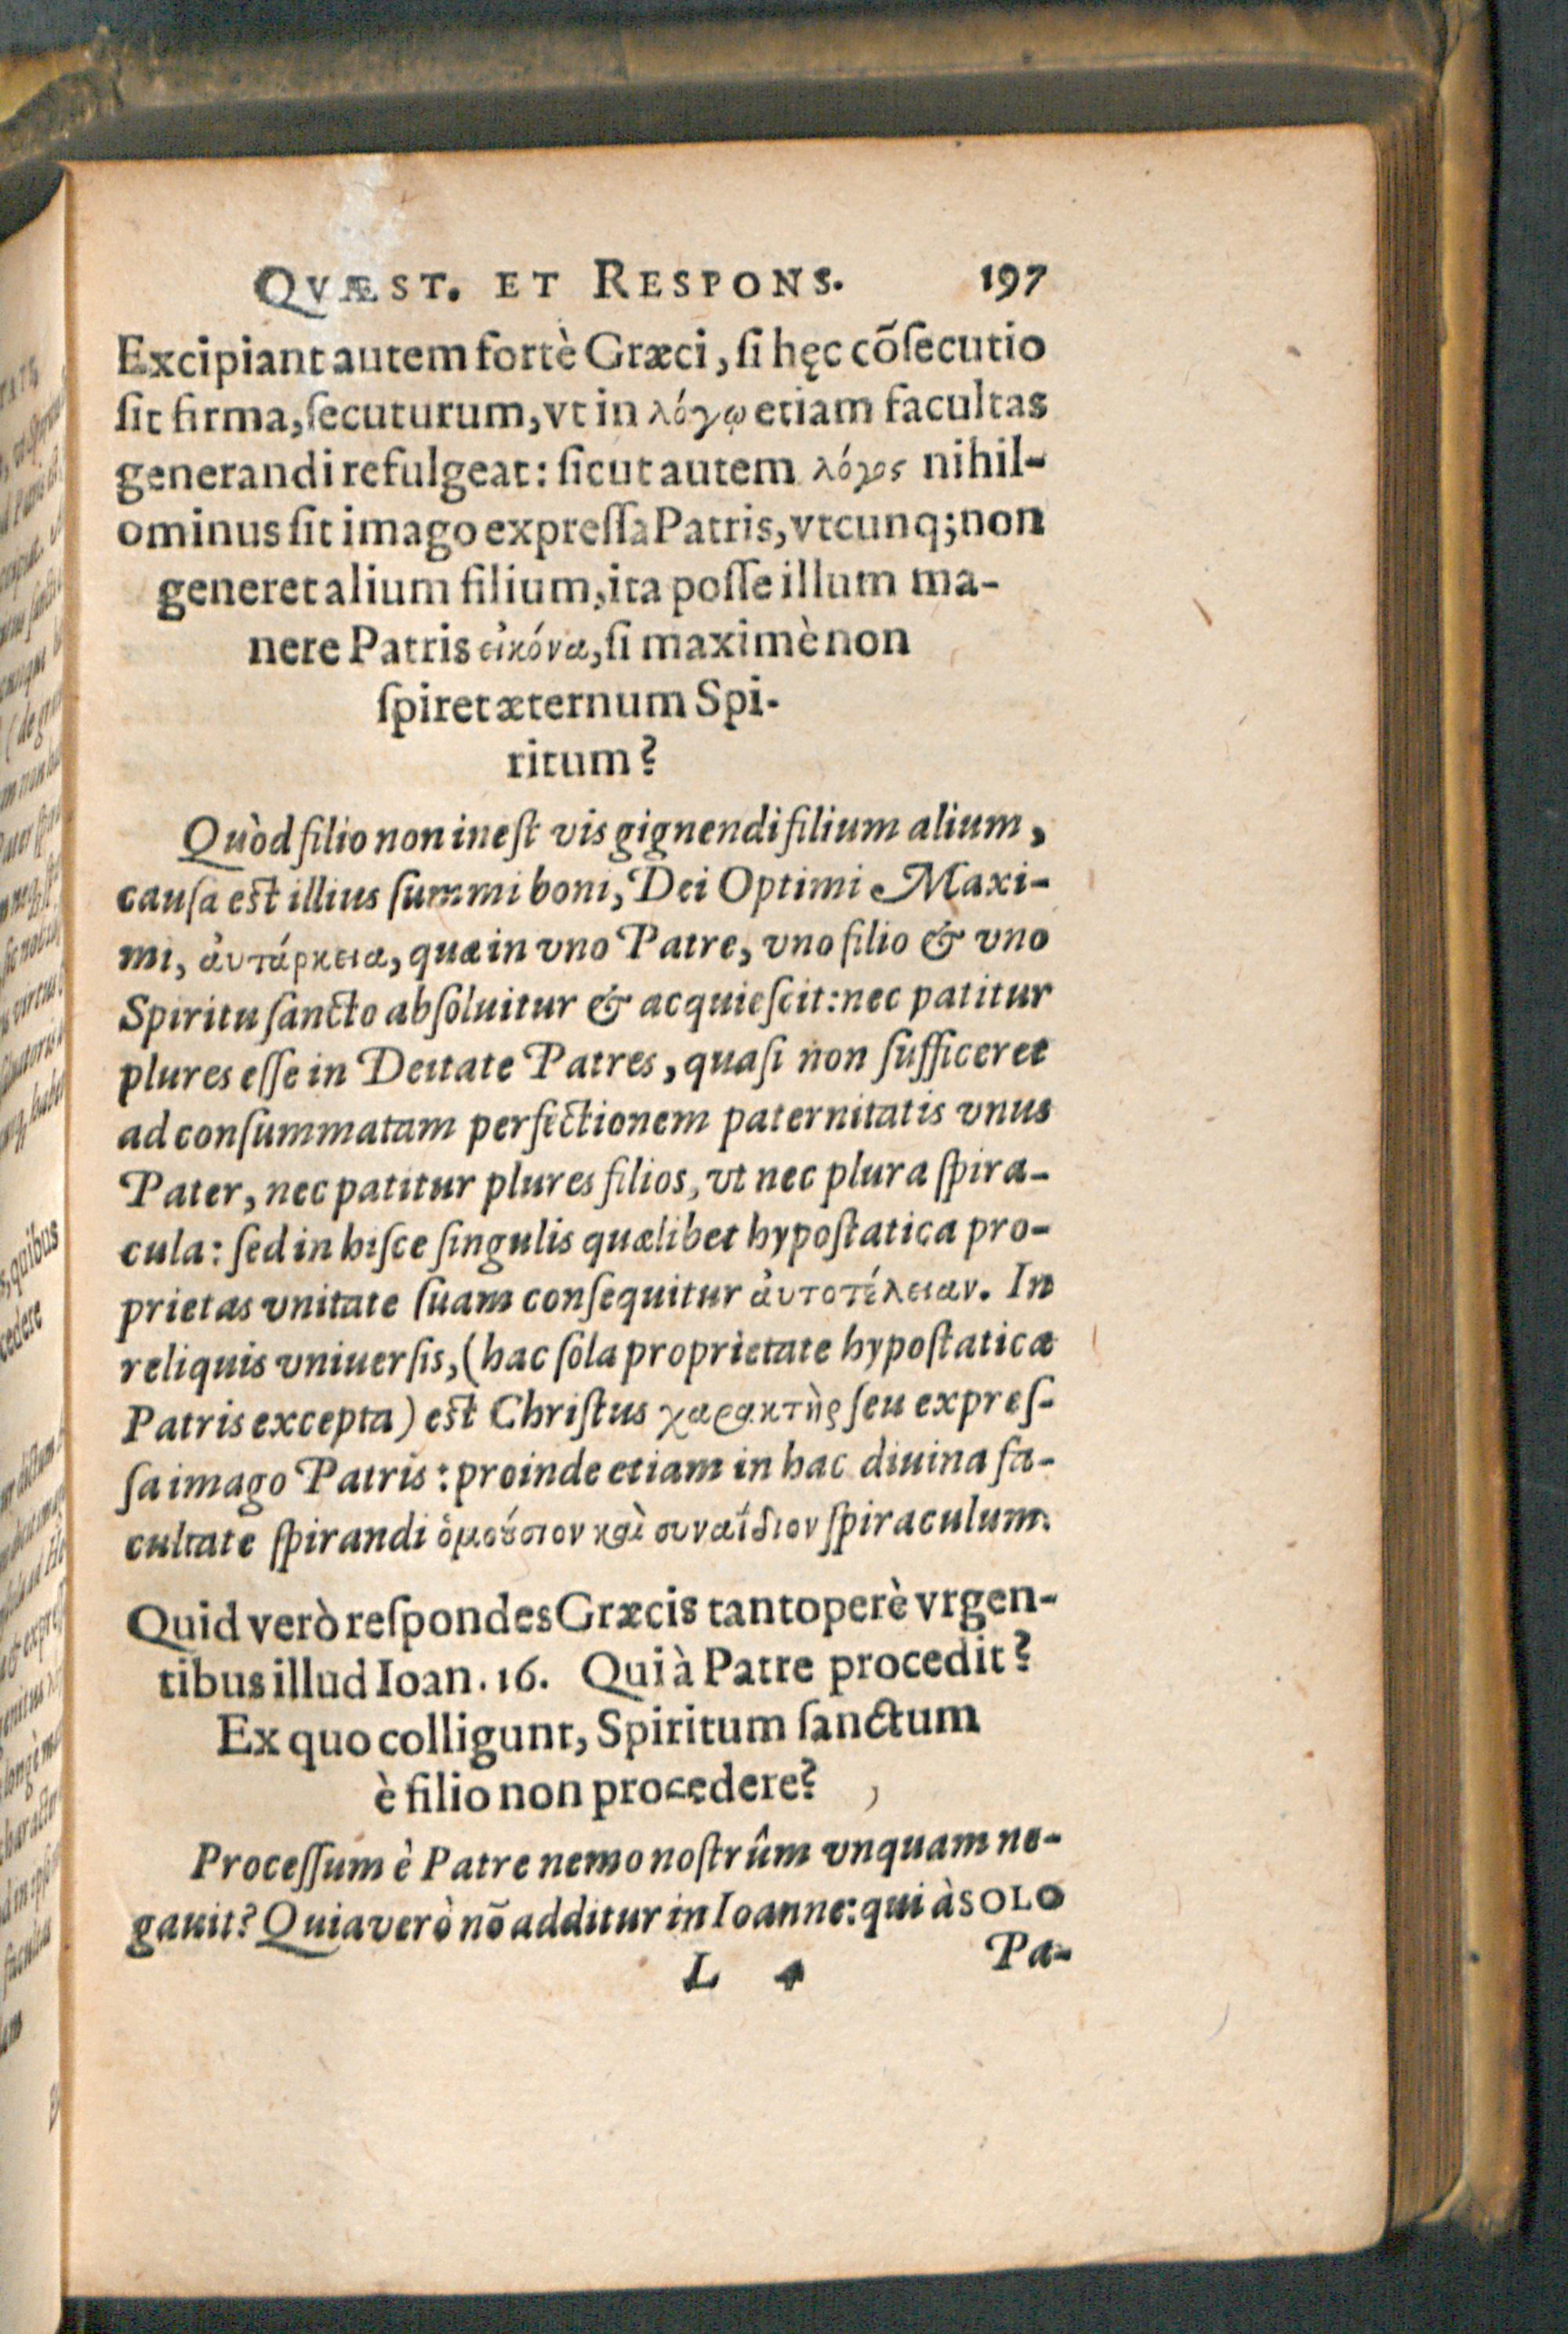 QVÆST. ET RESPONS. 197
Excipiant autem fortè Græci, ſi hęc cõſecutio
ſit firma, ſecuturum, vt in λόγῳ etiam facultas
generandi refulgeat: ſicut autem λόγος nihil-
ominus ſit imago expreſſa Patris, vtcunq; non
generet alium filium, ita poſſe illum ma-
nere Patris εἰκόνα, ſi maximè non
ſpiret æternum Spi-
ritum?
Quòd filio non ineſt vis gignendi filium alium,
cauſa eſt illius ſummi boni, Dei Optimi Maxi-
mi, ἀυτάρκεια, quæ in vno Patre, vno filio & vno
Spiritu ſancto abſoluitur & acquieſcit: nec patitur
plures eſſe in Deitate Patres, quaſi non ſufficeret
ad conſummatam perfectionem paternitatis vnus
Pater, nec patitur plures filios, vt nec plura ſpira-
cula: ſed in hiſce ſingulis quælibet hypoſtatica pro-
prietas vnitate ſuam conſequitur ἀυτοτέλειαν. In
reliquis vniuerſis, (hac ſola proprietate hypoſtaticæ
Patris excepta) eſt Chriſtus χαρακτὴρ ſeu expreſ-
ſa imago Patris: proinde etiam in hac diuina fa-
cultate ſpirandi ὁμοούσιον καὶ συναΐδιον ſpiraculum.
Quid verò reſpondes Græcis tantoperè vrgen-
tibus illud Ioan. 16. Qui à Patre procedit?
Ex quo colligunt, Spiritum ſanctum
è filio non procedere?
Proceſſum è Patre nemo noſtrûm vnquam ne-
gauit? Quia verò nõ additur in Ioanne: qui à SOLO
L 4 Pa-